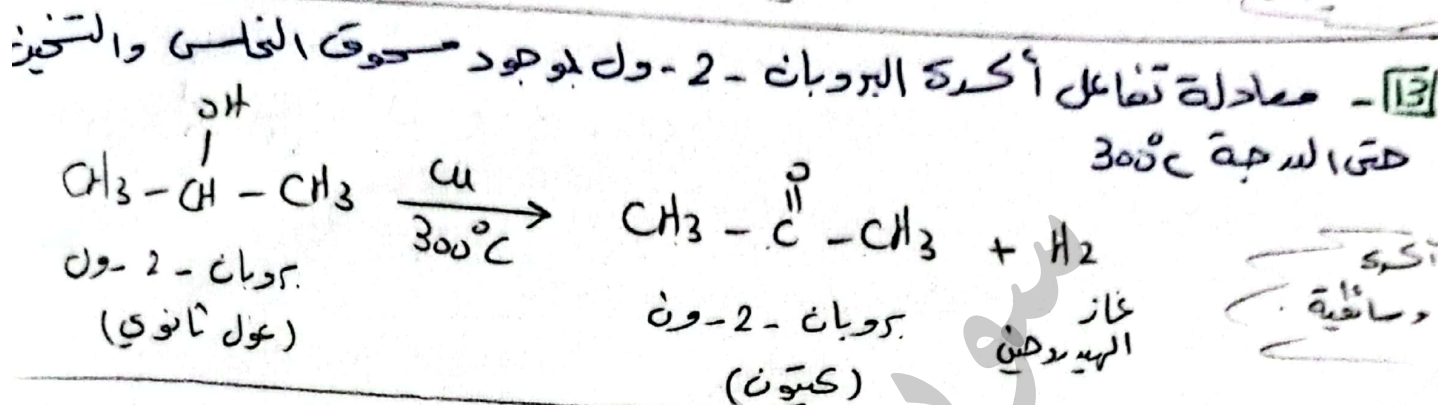 13 - معادلة تفاعل أكسدة البروبان - 2 - ول بوجود مسحوق النحاس والتسخين
حتى الدرجة 300°C
OH
CH3 - CH - CH3 Cu 300°C → CH3 - C - CH3 + H2
O
بروبان - 2 - ول
(غول ثانوي)
بروبان - 2 - ون
(كيتون)
غاز
الهيدروجين
أكسدة
وساطية